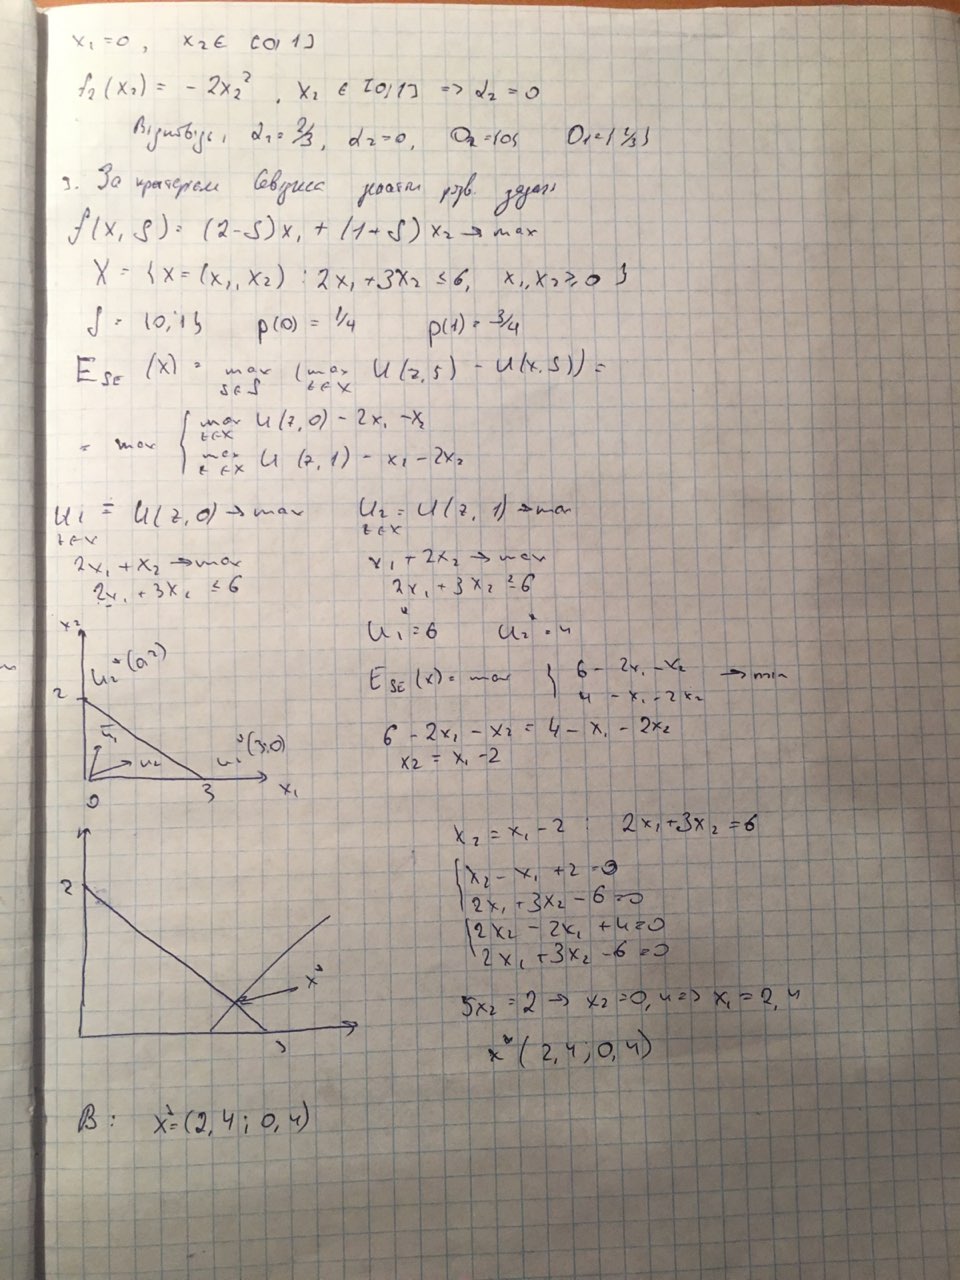 x₁ = 0, x₂ ∈ [0, 1]
f₂(x₂) = - 2x₂², x₂ ∈ [0,1] => α₂ = 0
α₂ = 0,
3. За критерієм Севіджа знайти розв. задачі
f(x, S) = (2-S)x₁ + (1+S)x₂ → max
X = {x = (x₁, x₂) : 2x₁ + 3x₂ ≤ 6, x₁, x₂ ≥ 0}
S = {0; 1} p(0) = 1/4 p(1) = 3/4
E_SE (x) = max_{S∈S} (max_{z∈X} U(z, S) - U(x, S)) =
= max { max_{z∈X} U(z, 0) - 2x₁ - x₂
max_{z∈X} U(z, 1) - x₁ - 2x₂
U₁ = U(z, 0) → max U₂ = U(z, 1) → max
z∈X z∈X
2x₁ + x₂ → max x₁ + 2x₂ → max
2x₁ + 3x₂ ≤ 6 2x₁ + 3x₂ ≤ 6
U₁* = 6 U₂* = 4
x₂
U₂*(0,2)
2
U₂
U₁*(3,0)
0 3 x₁
E_SE(x) = max { 6 - 2x₁ - x₂ → min
4 - x₁ - 2x₂
6 - 2x₁ - x₂ = 4 - x₁ - 2x₂
x₂ = x₁ - 2
x₂ = x₁ - 2 : 2x₁ + 3x₂ = 6
{ x₂ - x₁ + 2 = 0
2x₁ + 3x₂ - 6 = 0
{ 2x₂ - 2x₁ + 4 = 0
2x₁ + 3x₂ - 6 = 0
2
x*
3
5x₂ = 2 → x₂ = 0,4 => x₁ = 2,4
x* (2,4 ; 0,4)
В: x* = (2,4 ; 0,4)